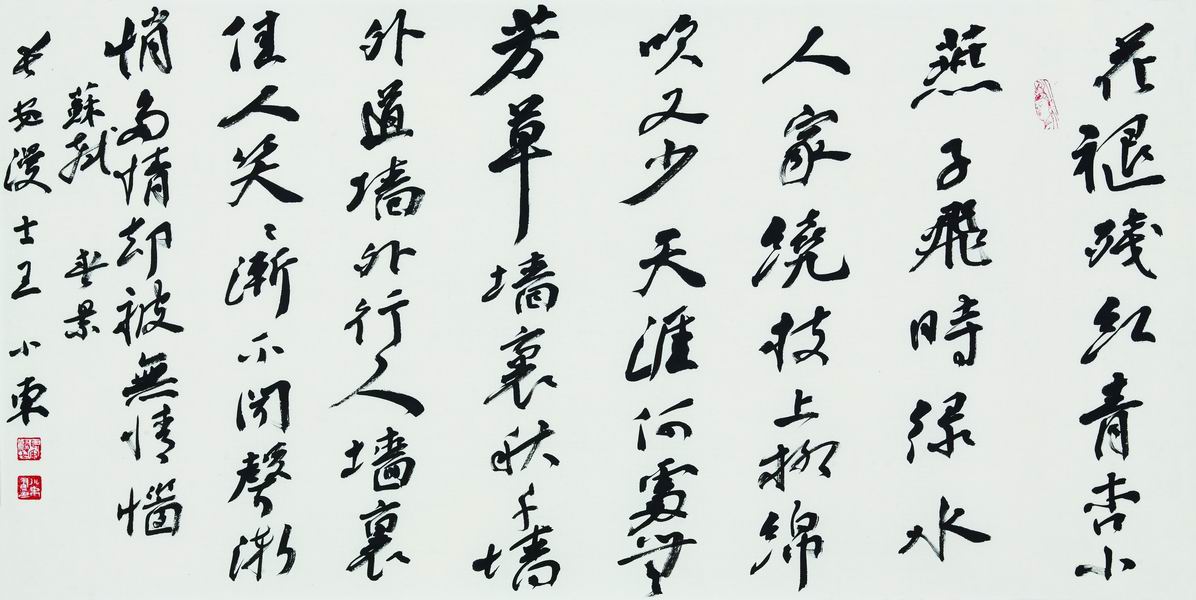 花褪残红青杏小
燕子飛時绿水
人家绕枝上柳绵
吹又少天涯何處無
芳草墙裏秋千墙
外道墙外行人墙裏
佳人笑〻漸不闻聲渐
悄多情却被無情惱
蘇軾 春景
长安漫士王小東